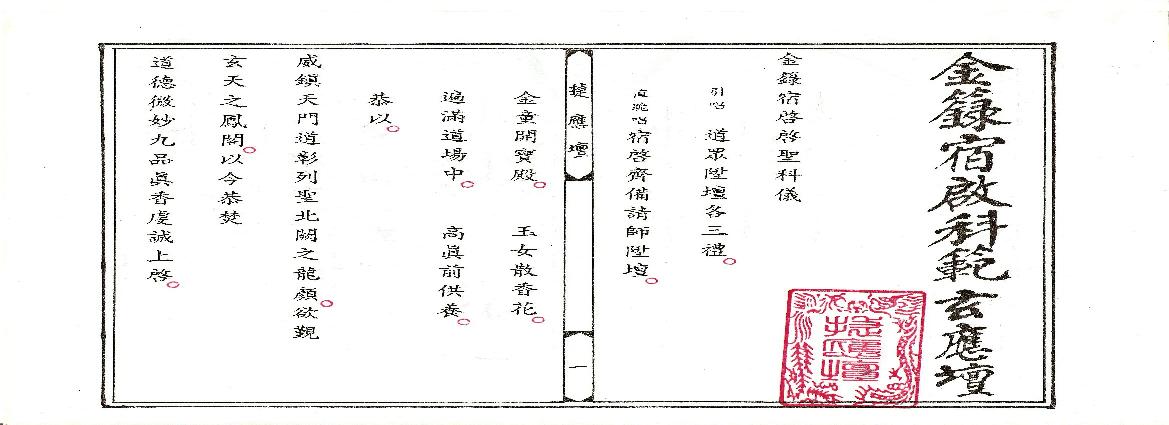 金籙宿啟科範玄應壇
金籙宿啓啓聖科儀
引唱　道眾陞壇各三禮。
宿啓齊備請師陞壇。
捷應壇
一
金童開寶殿。　玉女散香花。
遍滿道場中。　高眞前供養。
恭以。
威鎮天門道彰列聖北闕之龍顏。欲覲
玄天之鳳闕。以今恭焚
道德微妙九品眞香虔誠上啓。